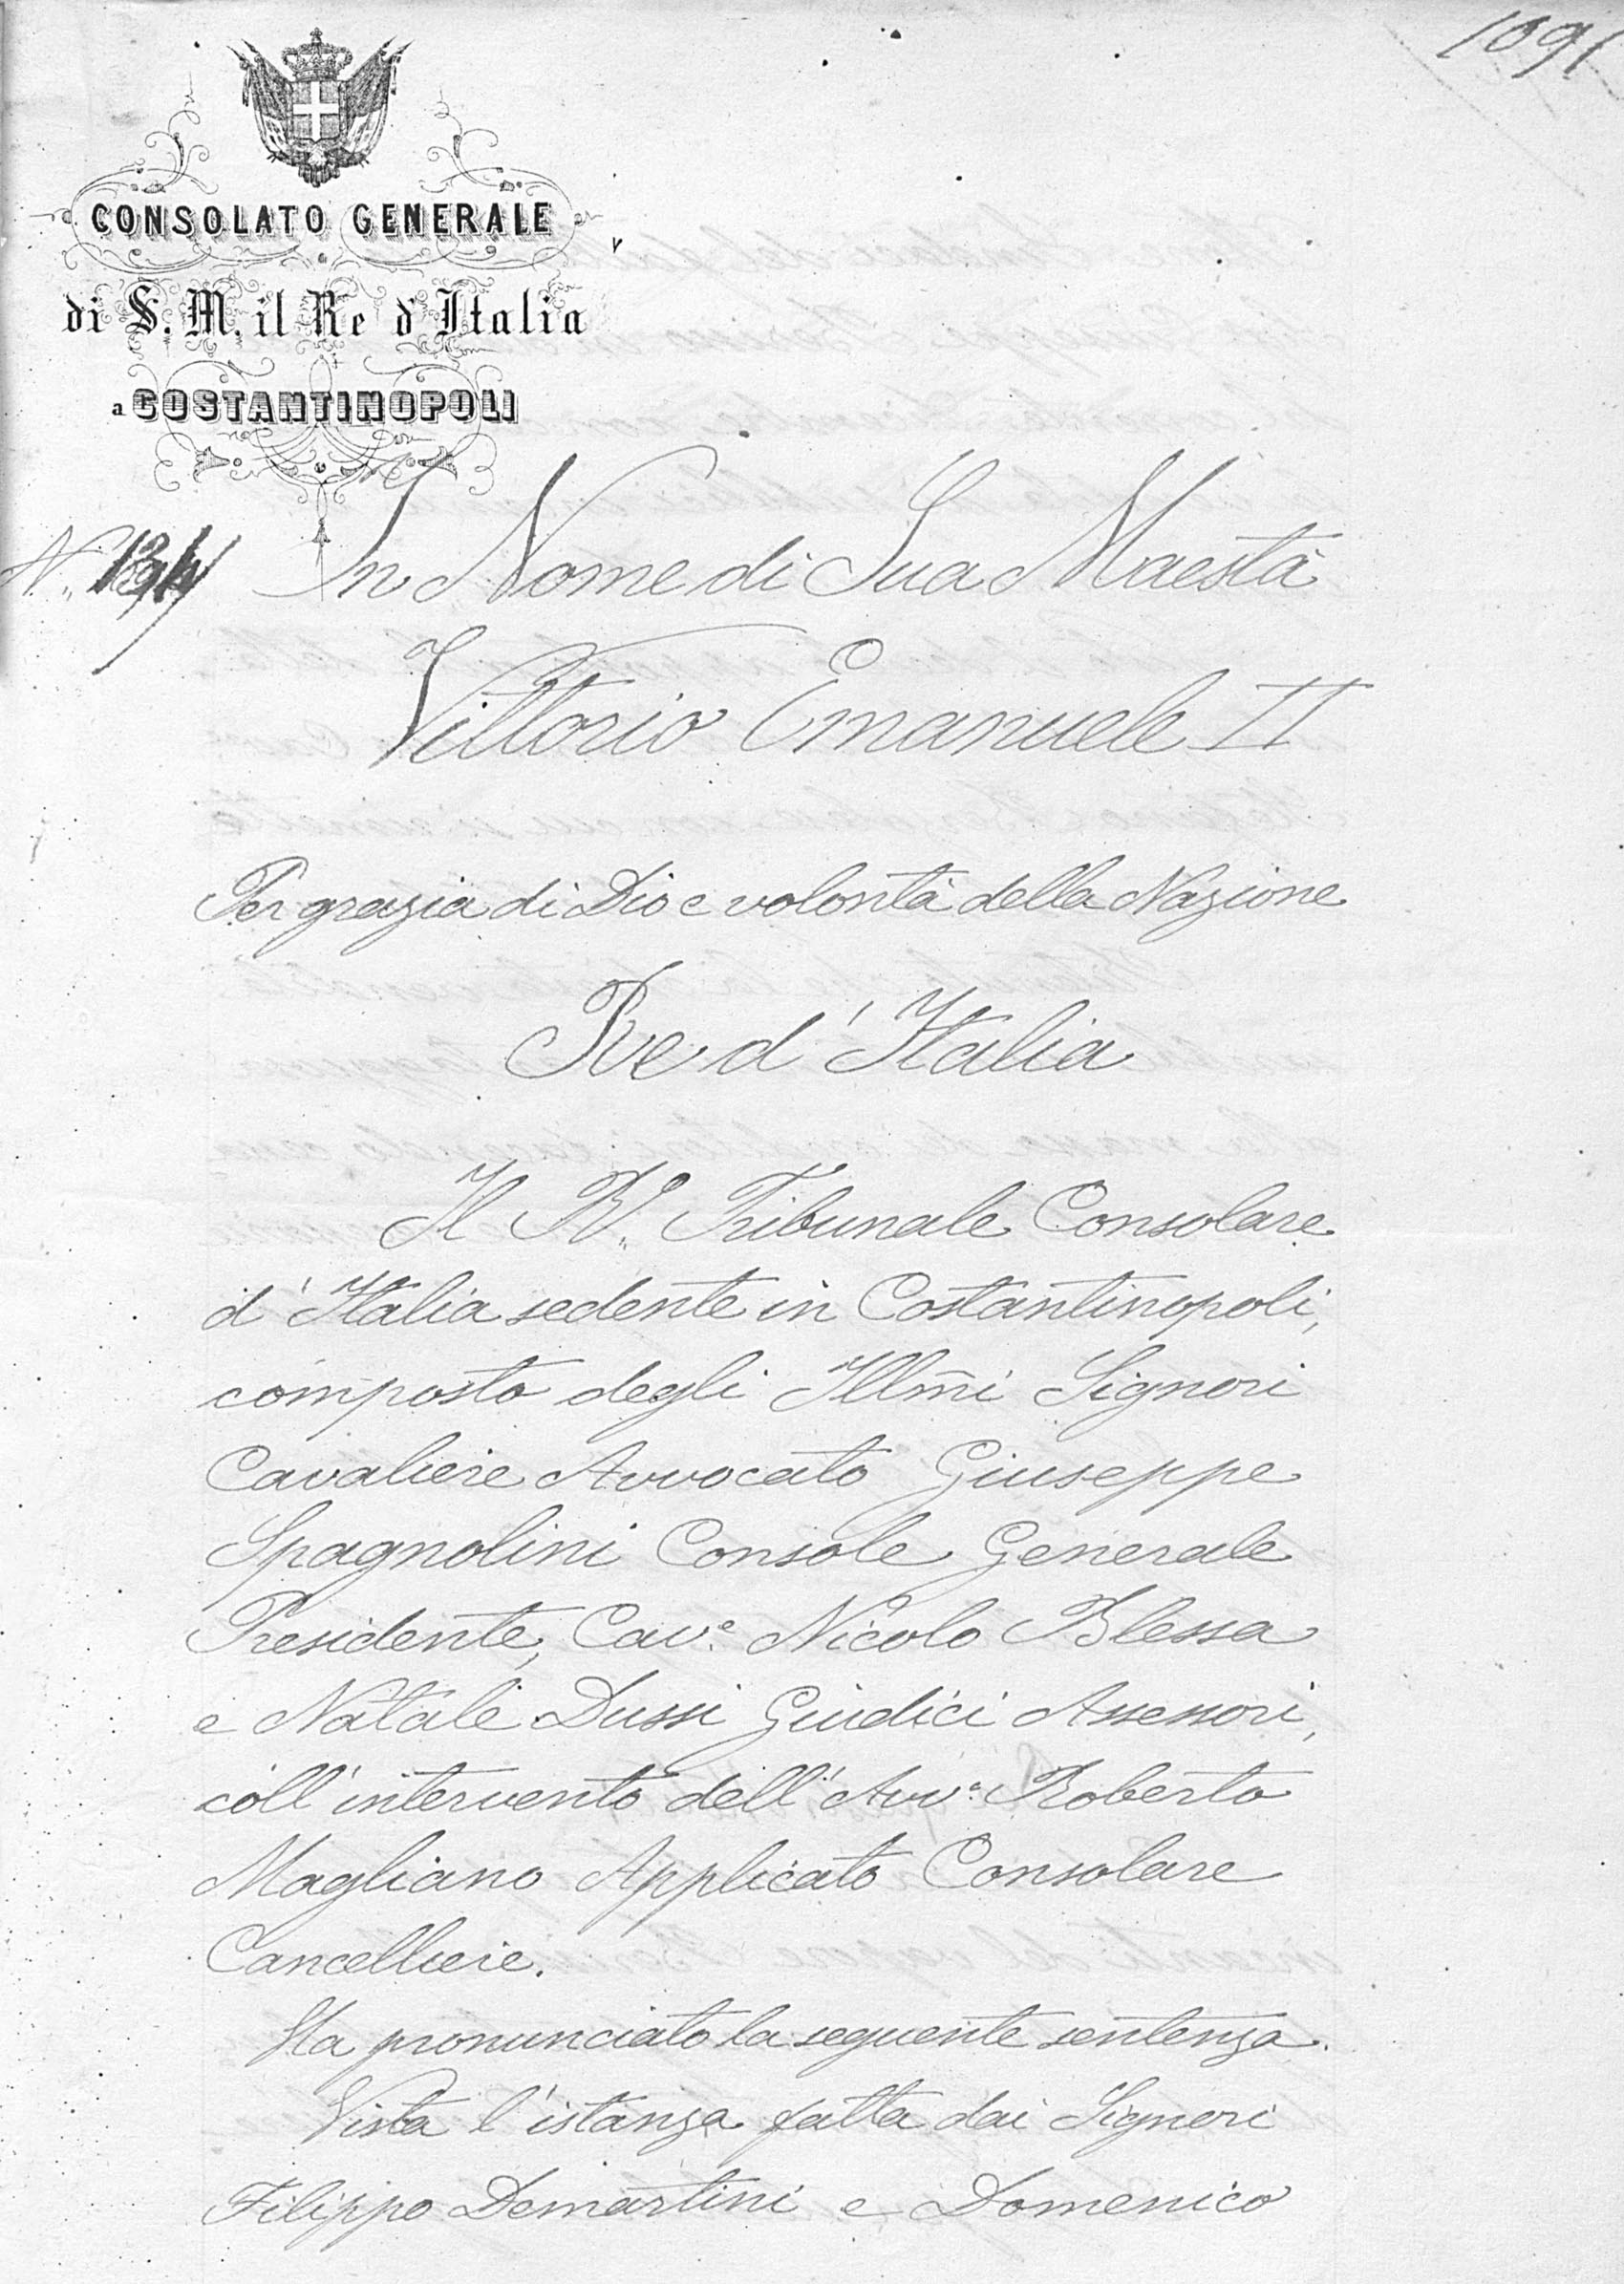 1091
CONSOLATO GENERALE
di S. M. il Re d'Italia
a COSTANTINOPOLI
N.
In Nome di Sua Maestà
Vittorio Emanuele II
Per grazia di Dio e volontà della Nazione
Re d'Italia
Il R. Tribunale Consolare
d'Italia sedente in Costantinopoli,
composto degli Illmi Signori
Cavaliere Avvocato Giuseppe
Spagnolini Console Generale
Presidente, Cav.e Nicolo Blessa
e Natale Dussi Giudici Assessori,
coll'intervento dell'Avv.o Roberto
Magliano Applicato Consolare
Cancelliere.
Ha pronunciato la seguente sentenza.
Vista l'istanza fatta dai Signori
Filippo Demartini e Domenico